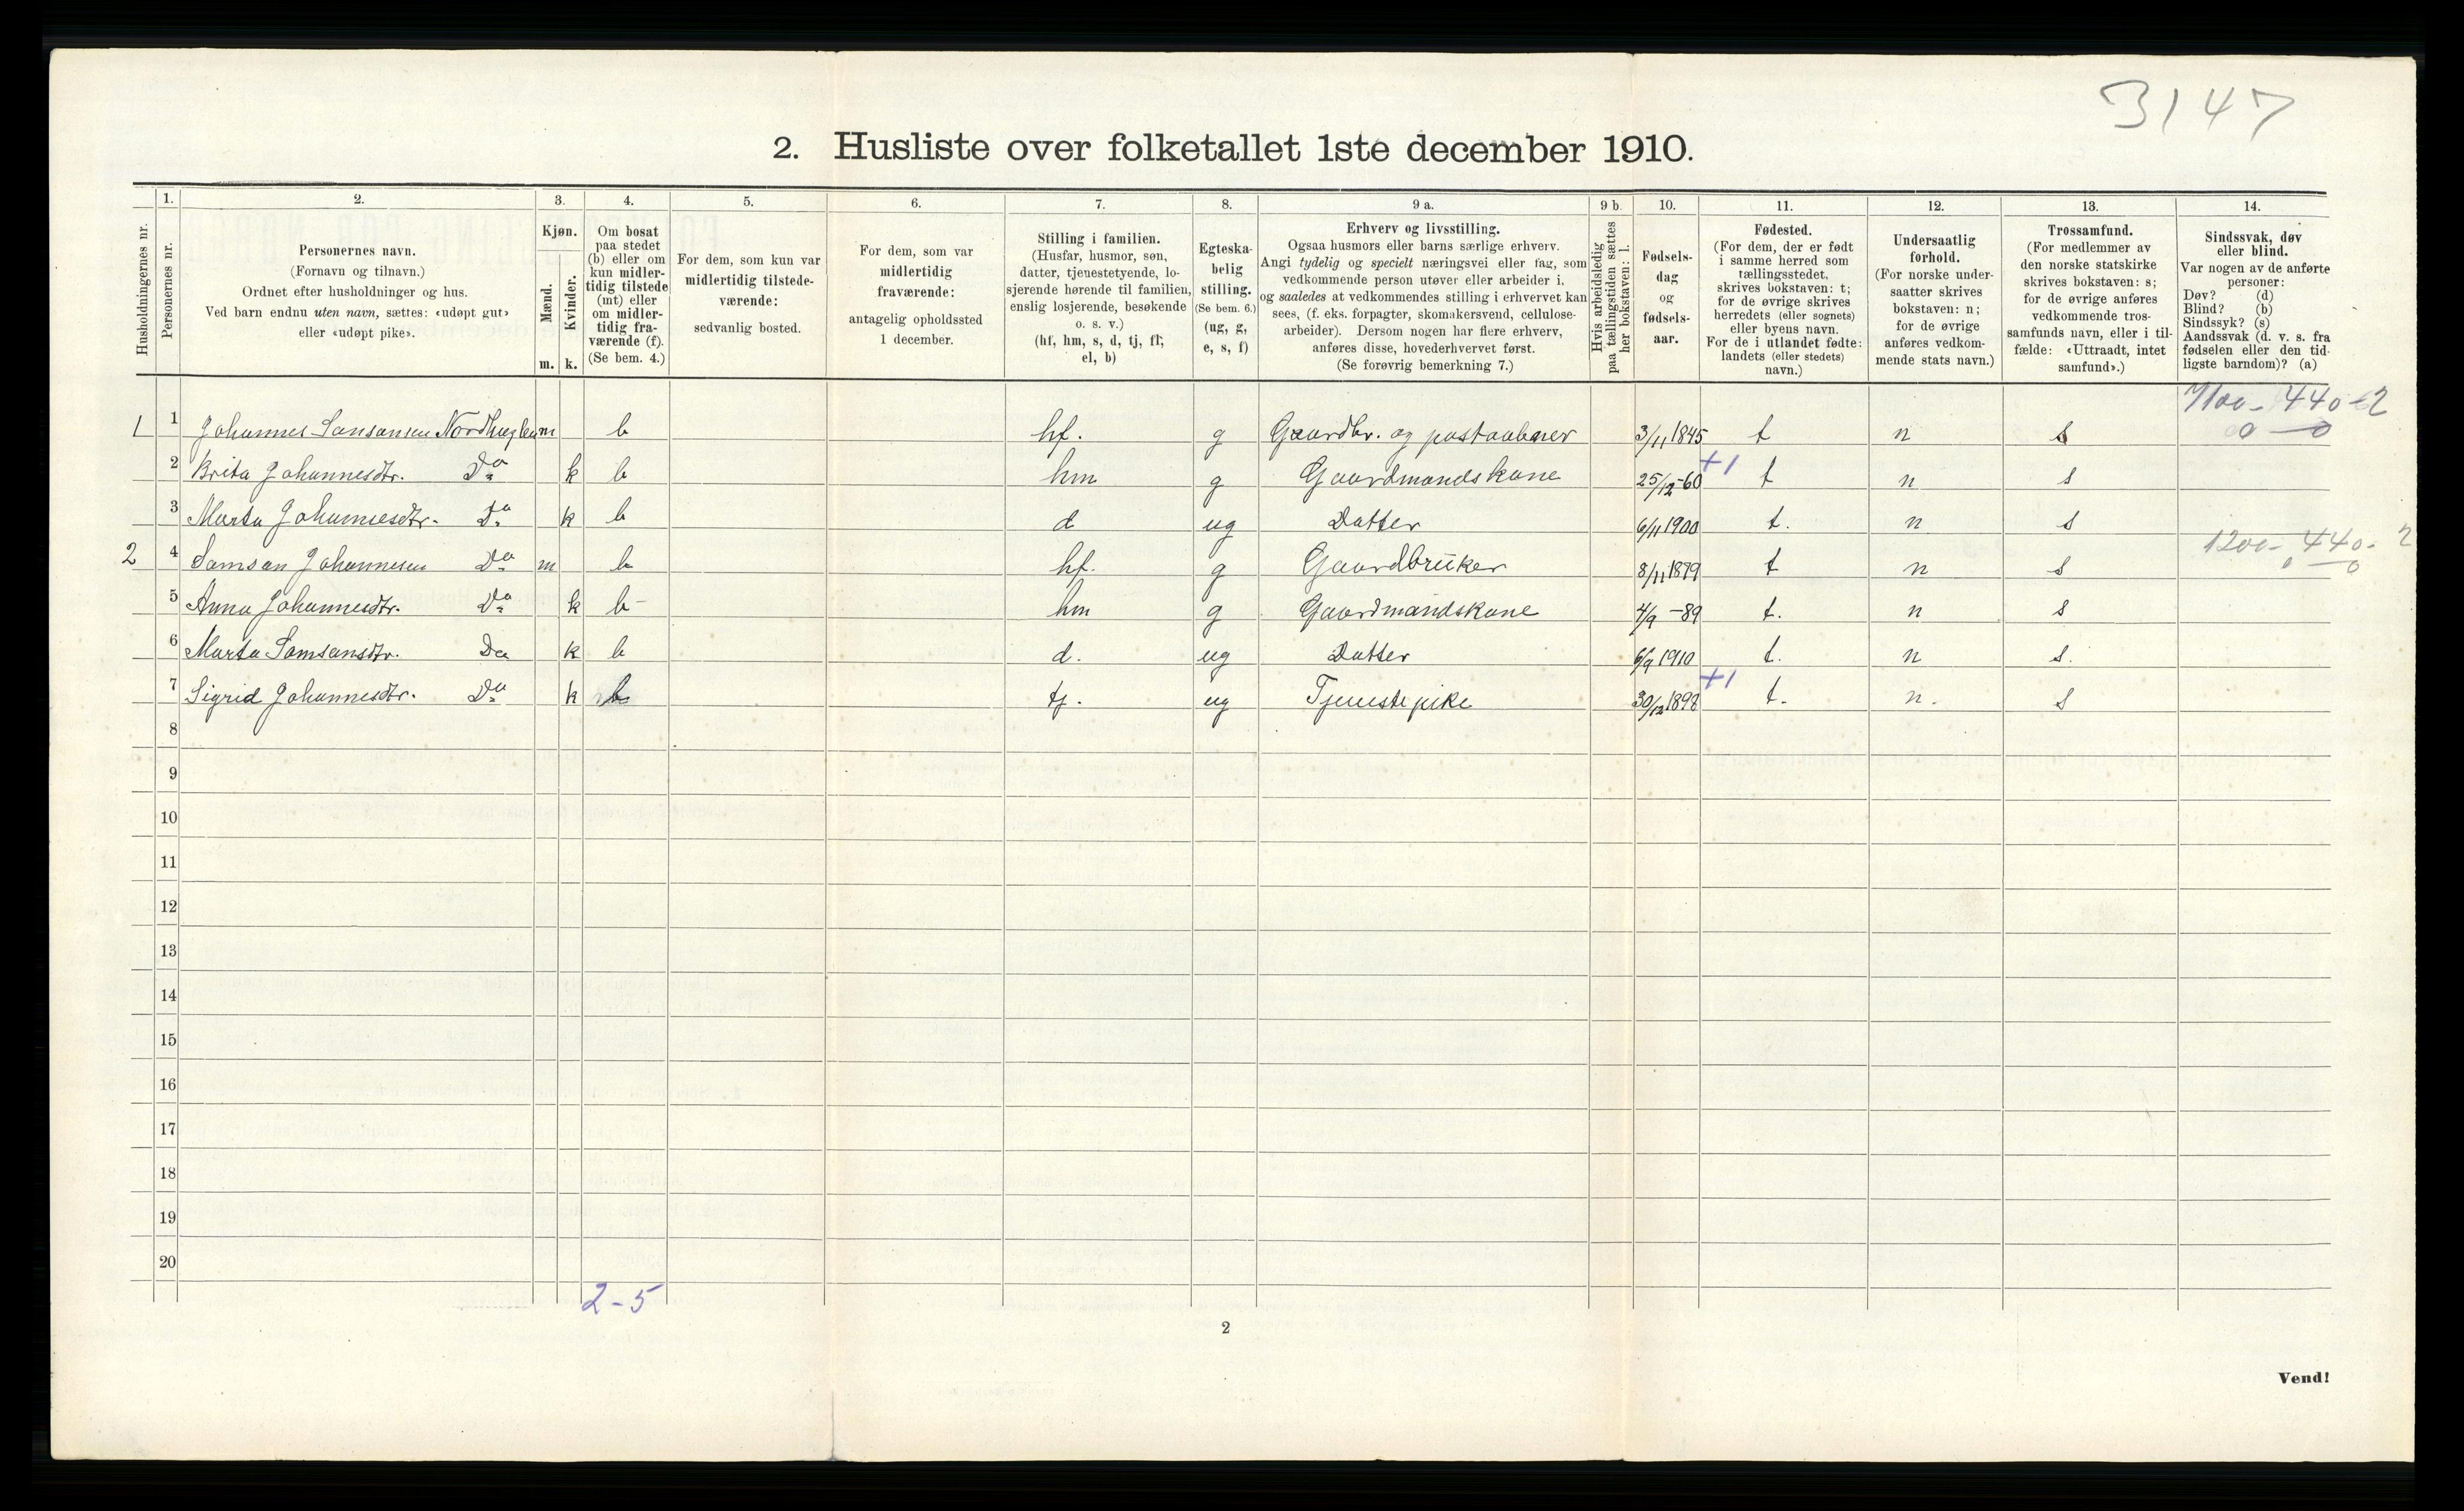 3147
2. Husliste over folketallet 1ste december 1910.
Husholdningernes nr.
1.
Personernes nr.
2.
Personernes navn.
(Fornavn og tilnavn.)
Ordnet efter husholdninger og hus.
Ved barn endnu uten navn, sættes: «udøpt gut»
eller «udøpt pike».
3.
Kjøn.
Mænd.
Kvinder.
m. k.
4.
Om bosat
paa stedet
(b) eller om
kun midler-
tidig tilstede
(mt) eller
om midler-
tidig fra-
værende (f).
(Se bem. 4.)
5.
For dem, som kun var
midlertidig tilstede-
værende:
sedvanlig bosted.
6.
For dem, som var
midlertidig
fraværende:
antagelig opholdssted
1 december.
7.
Stilling i familien.
(Husfar, husmor, søn,
datter, tjenestetyende, lo-
sjerende hørende til familien,
enslig losjerende, besøkende
o. s. v.)
(hf, hm, s, d, tj, fl,
el, b)
8.
Egteska-
belig
stilling.
(Se bem. 6.)
(ug, g,
e, s, f)
9 a.
Erhverv og livsstilling.
Ogsaa husmors eller barns særlige erhverv.
Angi tydelig og specielt næringsvei eller fag, som
vedkommende person utøver eller arbeider i,
og saaledes at vedkommendes stilling i erhvervet kan
sees, (f. eks. forpagter, skomakersvend, cellulose-
arbeider). Dersom nogen har flere erhverv,
anføres disse, hovederhvervet først.
(Se forøvrig bemerkning 7.)
9 b.
Hvis arbeidsledig
paa tællingstiden sættes
her bokstaven: l.
10.
Fødsels-
dag
og
fødsels-
aar.
11.
Fødested.
(For dem, der er født
i samme herred som
tællingsstedet,
skrives bokstaven: t;
for de øvrige skrives
herredets (eller sognets)
eller byens navn.
For de i utlandet fødte:
landets (eller stedets)
navn.)
12.
Undersaatlig
forhold.
(For norske under-
saatter skrives
bokstaven: n;
for de øvrige
anføres vedkom-
mende stats navn.)
13.
Trossamfund.
(For medlemmer av
den norske statskirke
skrives bokstaven: s;
for de øvrige anføres
vedkommende tros-
samfunds navn, eller i til-
fælde: «Uttraadt, intet
samfund».)
14.
Sindssvak, døv
eller blind.
Var nogen av de anførte
personer:
Døv? (d)
Blind? (b)
Sindssyk? (s)
Aandssvak (d. v. s. fra
fødselen eller den tid-
ligste barndom)? (a)
440-2
1 1 Johannes Samsonsen Nordhuglen m b hf. g Gaardbr. og postaabner 3/11 1845 t n s 0 — 0
+1
2 Brita Johannesdtr. Do k b hm g Gaardmandskone 25/12-60 t n s
3 Marta Johannesdtr. Do k b d ug Datter 6/11 1900 t. n s
1200-440-2
2 4 Samson Johannesen Do m b hf. g Gaardbruker 8/11 1879 t n s 0 — 0
5 Anna Johannesdtr. Do k b - hm g Gaardmandskone 4/9 -89 t. n s
6 Marta Samsonsdtr. Do k b d. ug Datter 6/9 1910 t. n s.
+1
7 Sigrid Johannesdtr. Do k b tj. ug Tjenestepike 30/12 1898 t. n. s
8
9
10
11
12
13
14
15
16
17
18
19
20
2-5
2
Vend!